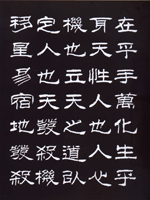 在乎手萬化生乎
身天性人也人心
機也立天之道以
定人也天發殺機
移星易宿地發殺